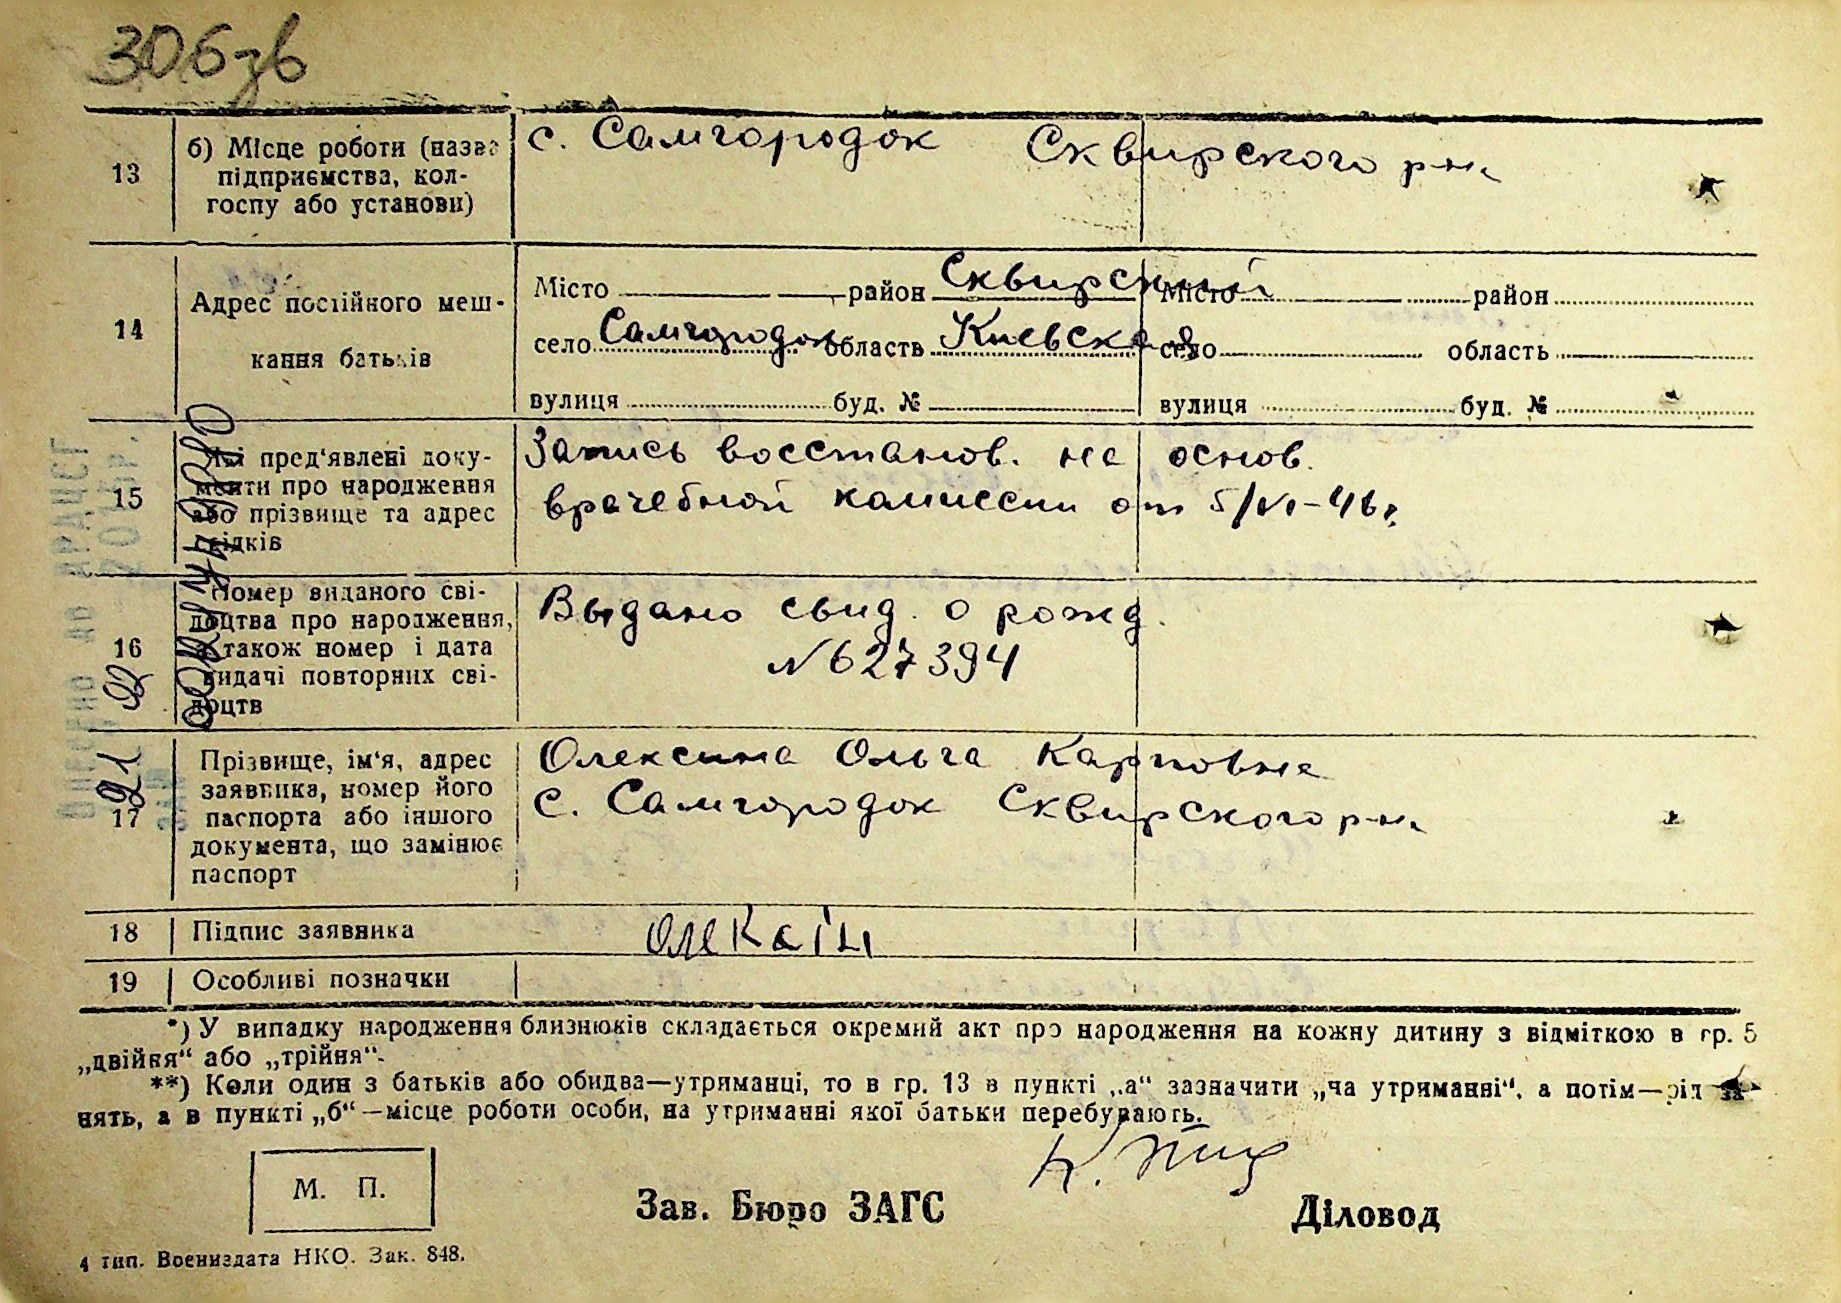 306зв
13
б) Місце роботи (назва
підприємства, кол-
госпу або установи)
с. Самгородок Сквирского р-на
14
Адрес постійного меш-
кання батьків
Місто район Сквирский
село Самгородок область Киевская
вулиця буд. №
Місто район
село область
вулиця буд. №
15
Які пред'явлені доку-
менти про народження
або прізвище та адрес
свідків
Запись восстанов. на основ.
врачебной комиссии от 5/VI-46г.
16
Номер виданого сві-
доцтва про народження,
а також номер і дата
видачі повторних сві-
доцтв
Выдано свид. о рожд.
№627394
17
Прізвище, ім'я, адрес
заявника, номер його
паспорта або іншого
документа, що замінює
паспорт
Олексина Ольга Карповна
с. Самгородок Сквирского р-на
18
Підпис заявника
19
Особливі позначки
*) У випадку народження близнюків складається окремий акт про народження на кожну дитину з відміткою в гр. 5
„двійня" або „трійня".
**) Коли один з батьків або обидва—утриманці, то в гр. 13 в пункті „а" зазначити „на утриманні", а потім—рід за-
нять, а в пункті „б"—місце роботи особи, на утриманні якої батьки перебувають.
М. П.
Зав. Бюро ЗАГС
Діловод
4 тип. Воениздата НКО. Зак. 848.